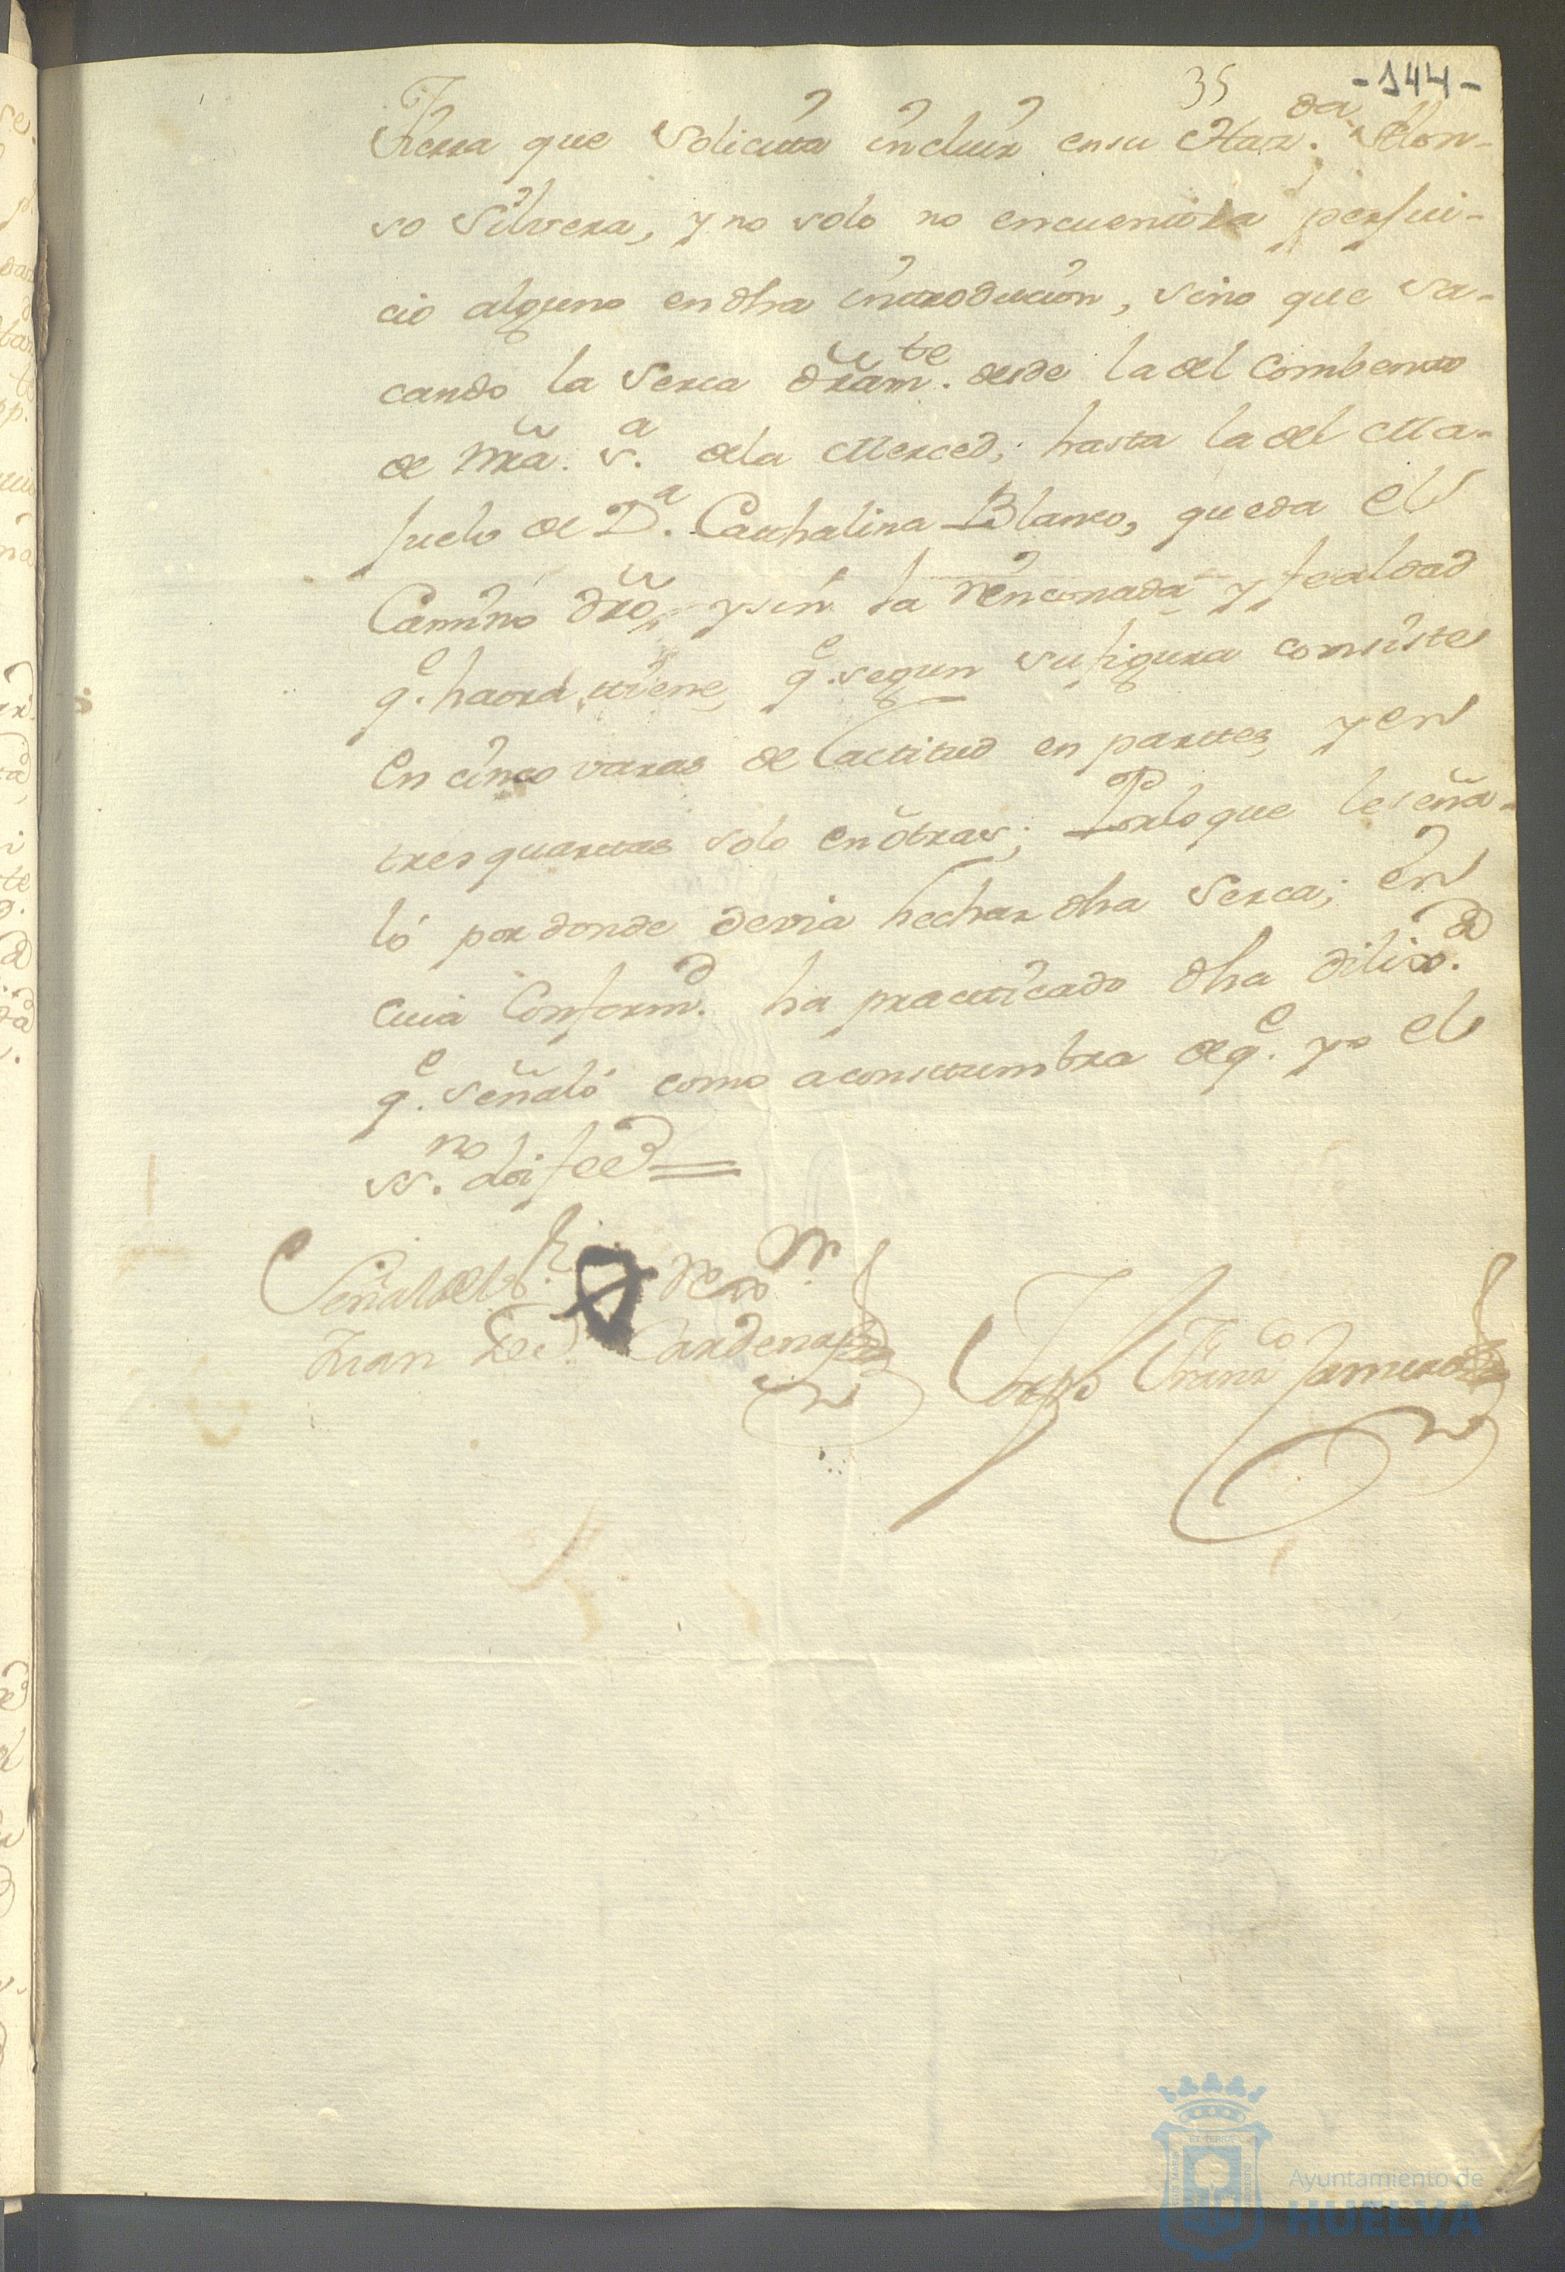 35 -144-
Tierra que Solicita incluir en su Haz.da Alon-
so Silvera, y no solo no encuentra perjui-
cio alguno en dha introducion, sino que sa-
cando la Serca dr̃am.te desde la del Combento
de Nr̃a. S.a de la Merced; hasta la del Ma-
juelo de D.a Cathalina Blanco, queda el
Camino dr̃o, y sin la rinconada y fealdad
q.e haora tiene, q.e segun su figura consiste
en cinco varas de lactitud en partes, y en
tres quartas solo en otras; Por lo que le seña-
ló por donde devia hechar dha Serca; en
cuia Conform.d ha practicado dha dilix.a
q.e señaló como acostumbra de q.e yo el
ss.no doi fee =
Señal del S.r
Juan Cardenas
Fran.co
Ayuntamiento de
HUELVA